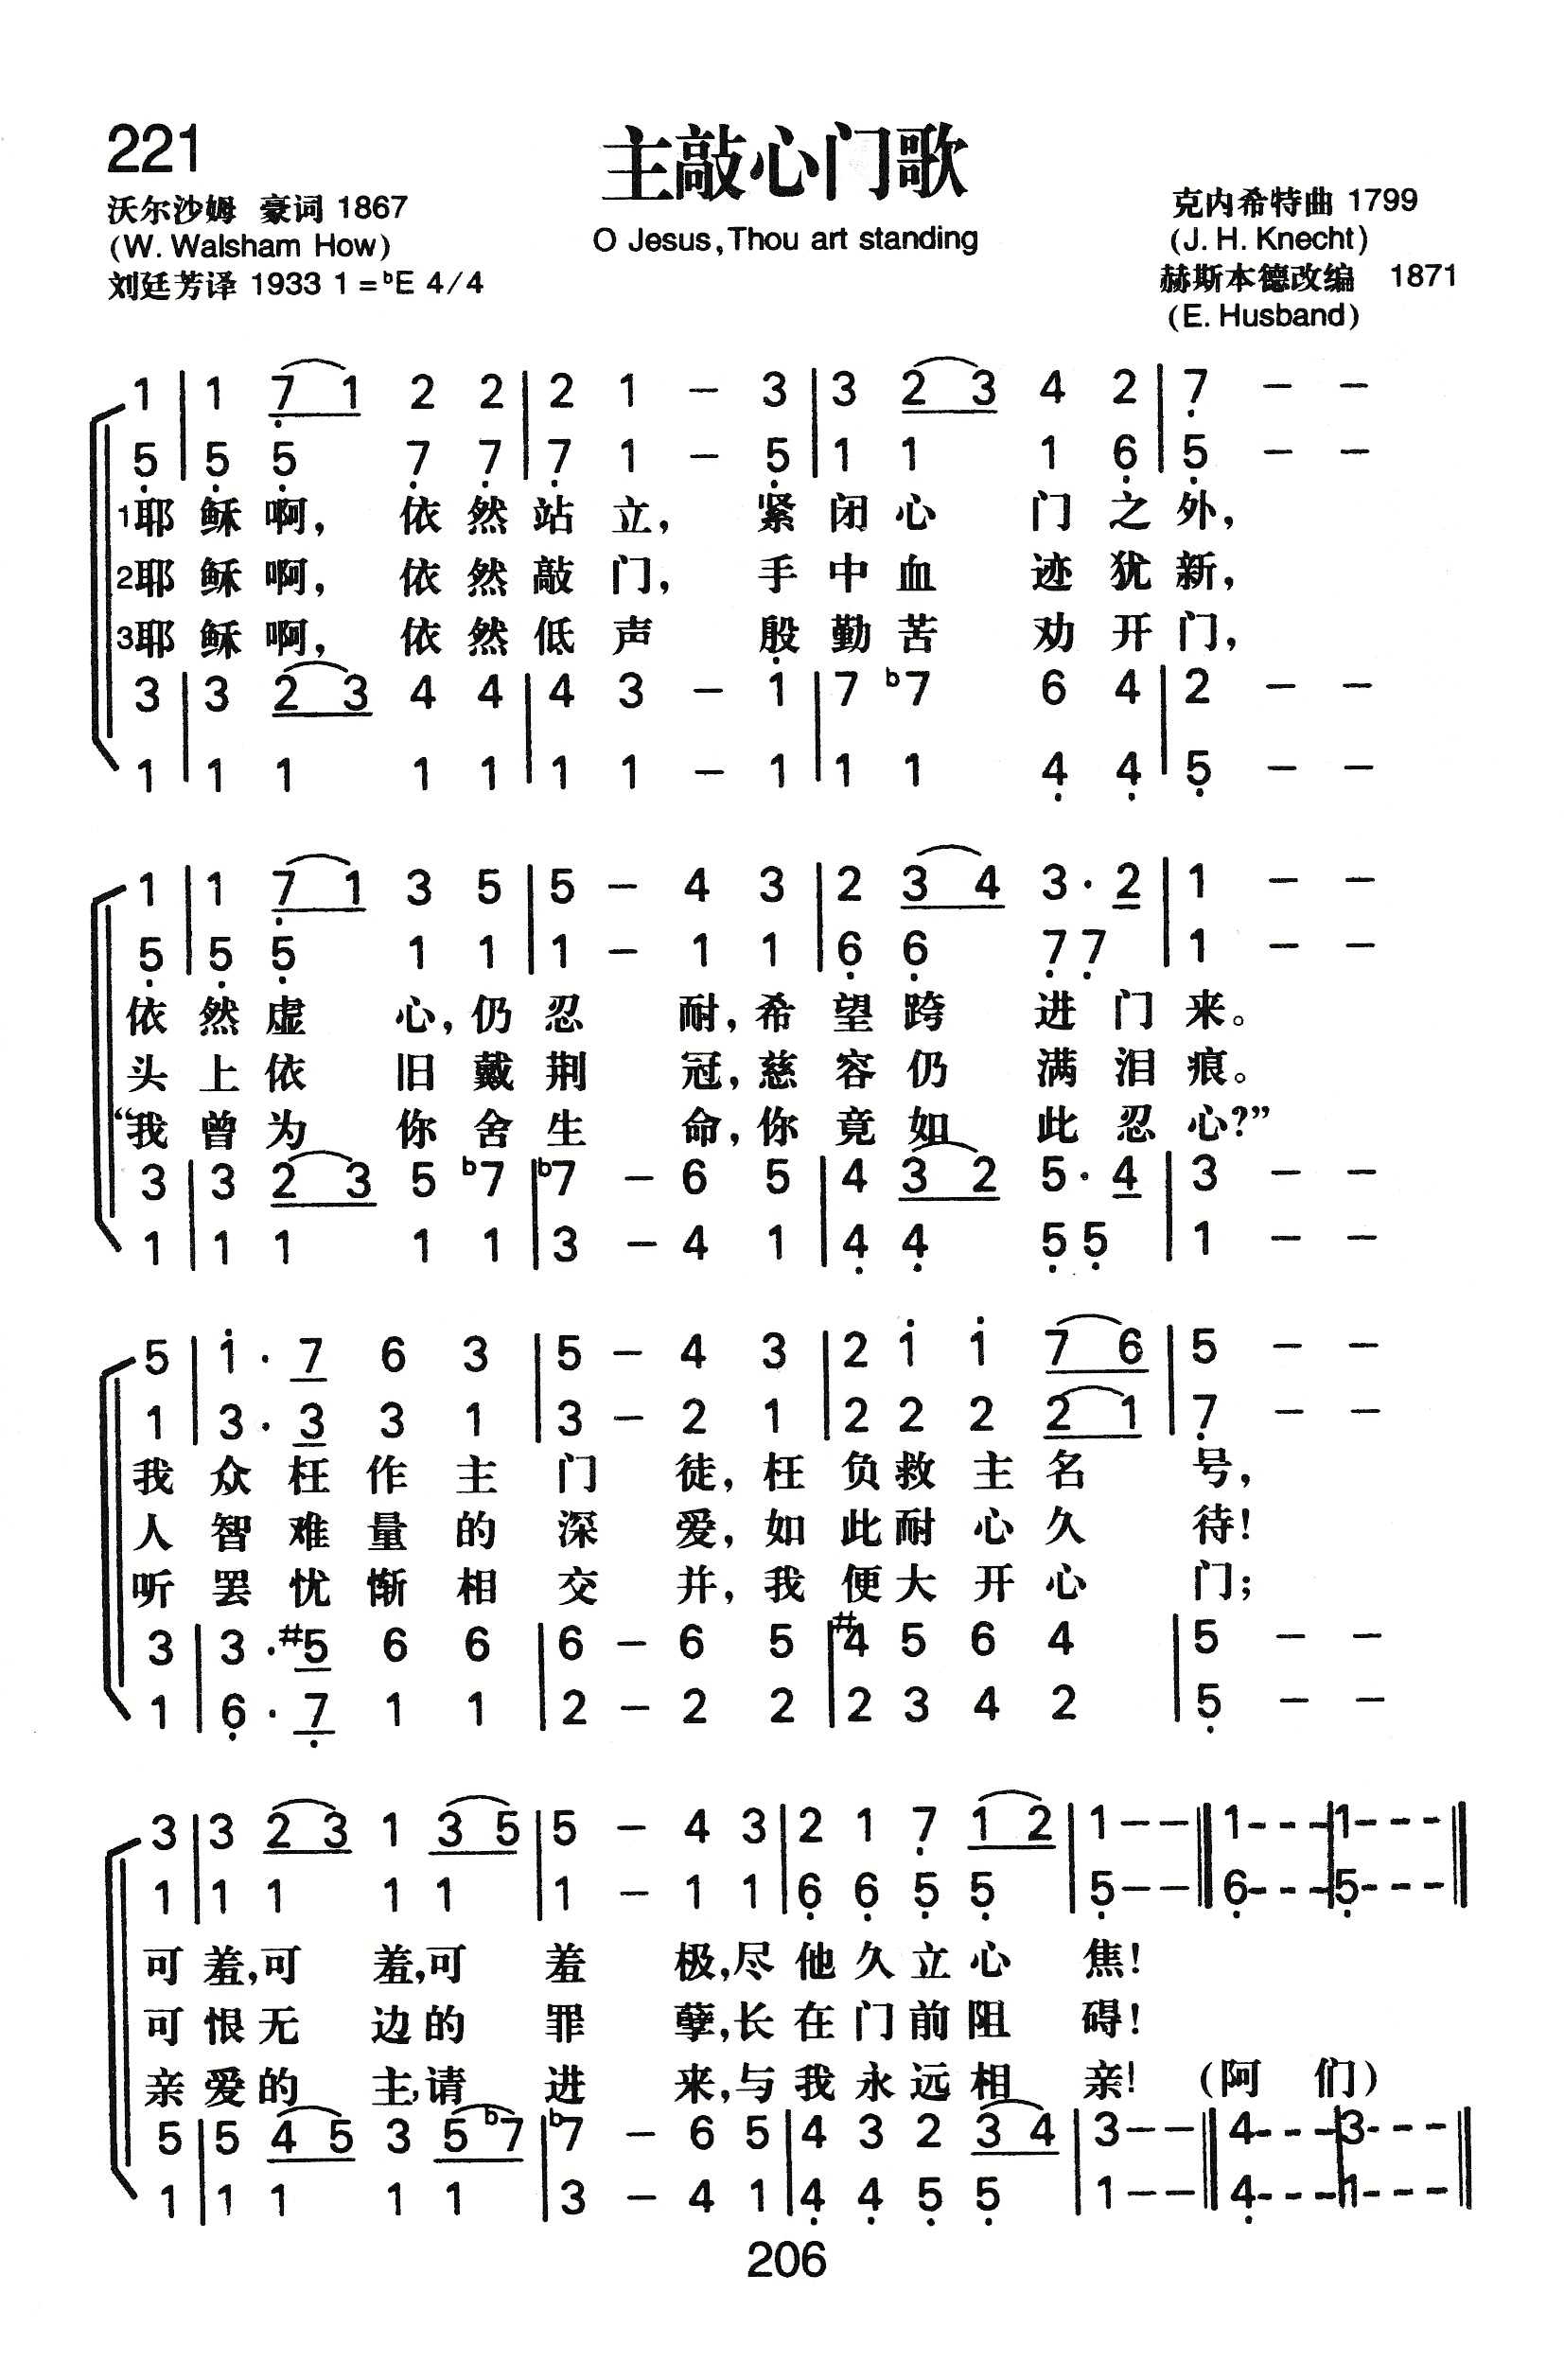 221
主敲心门歌
O Jesus, Thou art standing
沃尔沙姆 豪词 1867
(W. Walsham How)
刘廷芳译 1933 1=ᵇE 4/4
克内希特曲 1799
(J. H. Knecht)
赫斯本德改编 1871
(E. Husband)
1 | 1 7̣ 1 2 2 | 2 1 – 3 | 3 2 3 4 2 | 7̣ – –
5̣ | 5̣ 5̣ 7̣ 7̣ | 7̣ 1 – 5̣ | 1 1 1 6̣ | 5̣ – –
1耶稣啊，依然站立，紧闭心门之外，
2耶稣啊，依然敲门，手中血迹犹新，
3耶稣啊，依然低声殷勤苦劝开门，
3 | 3 2 3 4 4 | 4 3 – 1̇ | 7 ᵇ7 6 4 | 2 – –
1 | 1 1 1 1 | 1 1 – 1 | 1 1 4̣ 4̣ | 5̣ – –
1 | 1 7̣ 1 3 5 | 5 – 4 3 | 2 3 4 3· 2 | 1 – –
5̣ | 5̣ 5̣ 1 1 | 1 – 1 1 | 6̣ 6̣ 7̣ 7̣ | 1 – –
依然虚心，仍忍耐，希望跨进门来。
头上依旧戴荆冠，慈容仍满泪痕。
“我曾为你舍生命，你竟如此忍心？”
3 | 3 2 3 5 ᵇ7 | ᵇ7 – 6 5 | 4 3 2 5· 4 | 3 – –
1 | 1 1 1 1 | 3 – 4 1 | 4̣ 4̣ 5̣ 5̣ | 1 – –
5 | 1̇· 7 6 3 | 5 – 4 3 | 2 1̇ 1̇ 7 6 | 5 – –
1 | 3· 3 3 1 | 3 – 2 1 | 2 2 2 2 1 | 7̣ – –
我众枉作主门徒，枉负救主名号，
人智难量的深爱，如此耐心久待！
听罢忧惭相交并，我便大开心门；
3 | 3· #5 6 6 | 6 – 6 5 | #4 5 6 4 | 5 – –
1 | 6̣· 7̣ 1 1 | 2 – 2 2 | 2 3 4 2 | 5̣ – –
3 | 3 2 3 1 3 5 | 5 – 4 3 | 2 1 7̣ 1 2 | 1 – – ‖ 1 - - - | 1 - - - ‖
1 | 1 1 1 1 | 1 – 1 1 | 6̣ 6̣ 5̣ 5̣ | 5̣ – – ‖ 6̣ - - - | 5̣ - - - ‖
可羞，可羞，可羞极，尽他久立心焦！
可恨无边的罪孽，长在门前阻碍！
亲爱的主，请进来，与我永远相亲！（阿们）
5 | 5 4 5 3 5 ᵇ7 | ᵇ7 – 6 5 | 4 3 2 3 4 | 3 – – ‖ 4 - - - | 3 - - - ‖
1 | 1 1 1 1 | 3 – 4 1 | 4̣ 4̣ 5̣ 5̣ | 1 – – ‖ 4̣ - - - | 1 - - - ‖
206